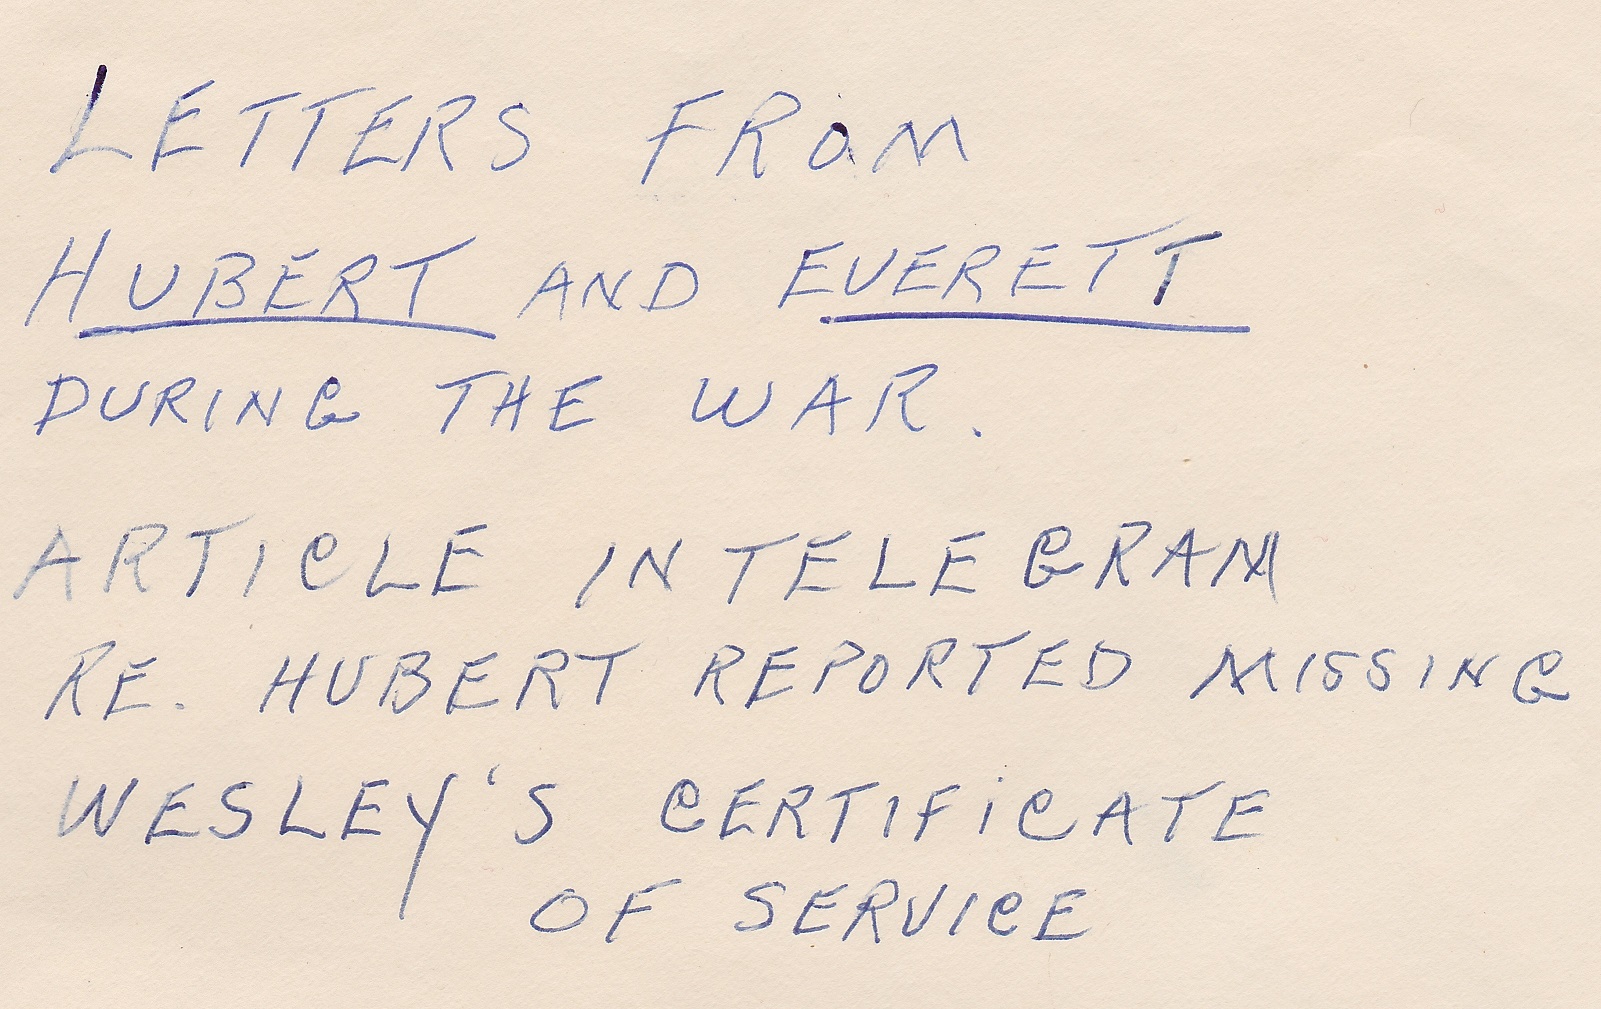 LETTERS FROM
HUBERT AND EVERETT
DURING THE WAR.
ARTICLE IN TELEGRAM
RE. HUBERT REPORTED MISSING
WESLEY'S CERTIFICATE
OF SERVICE